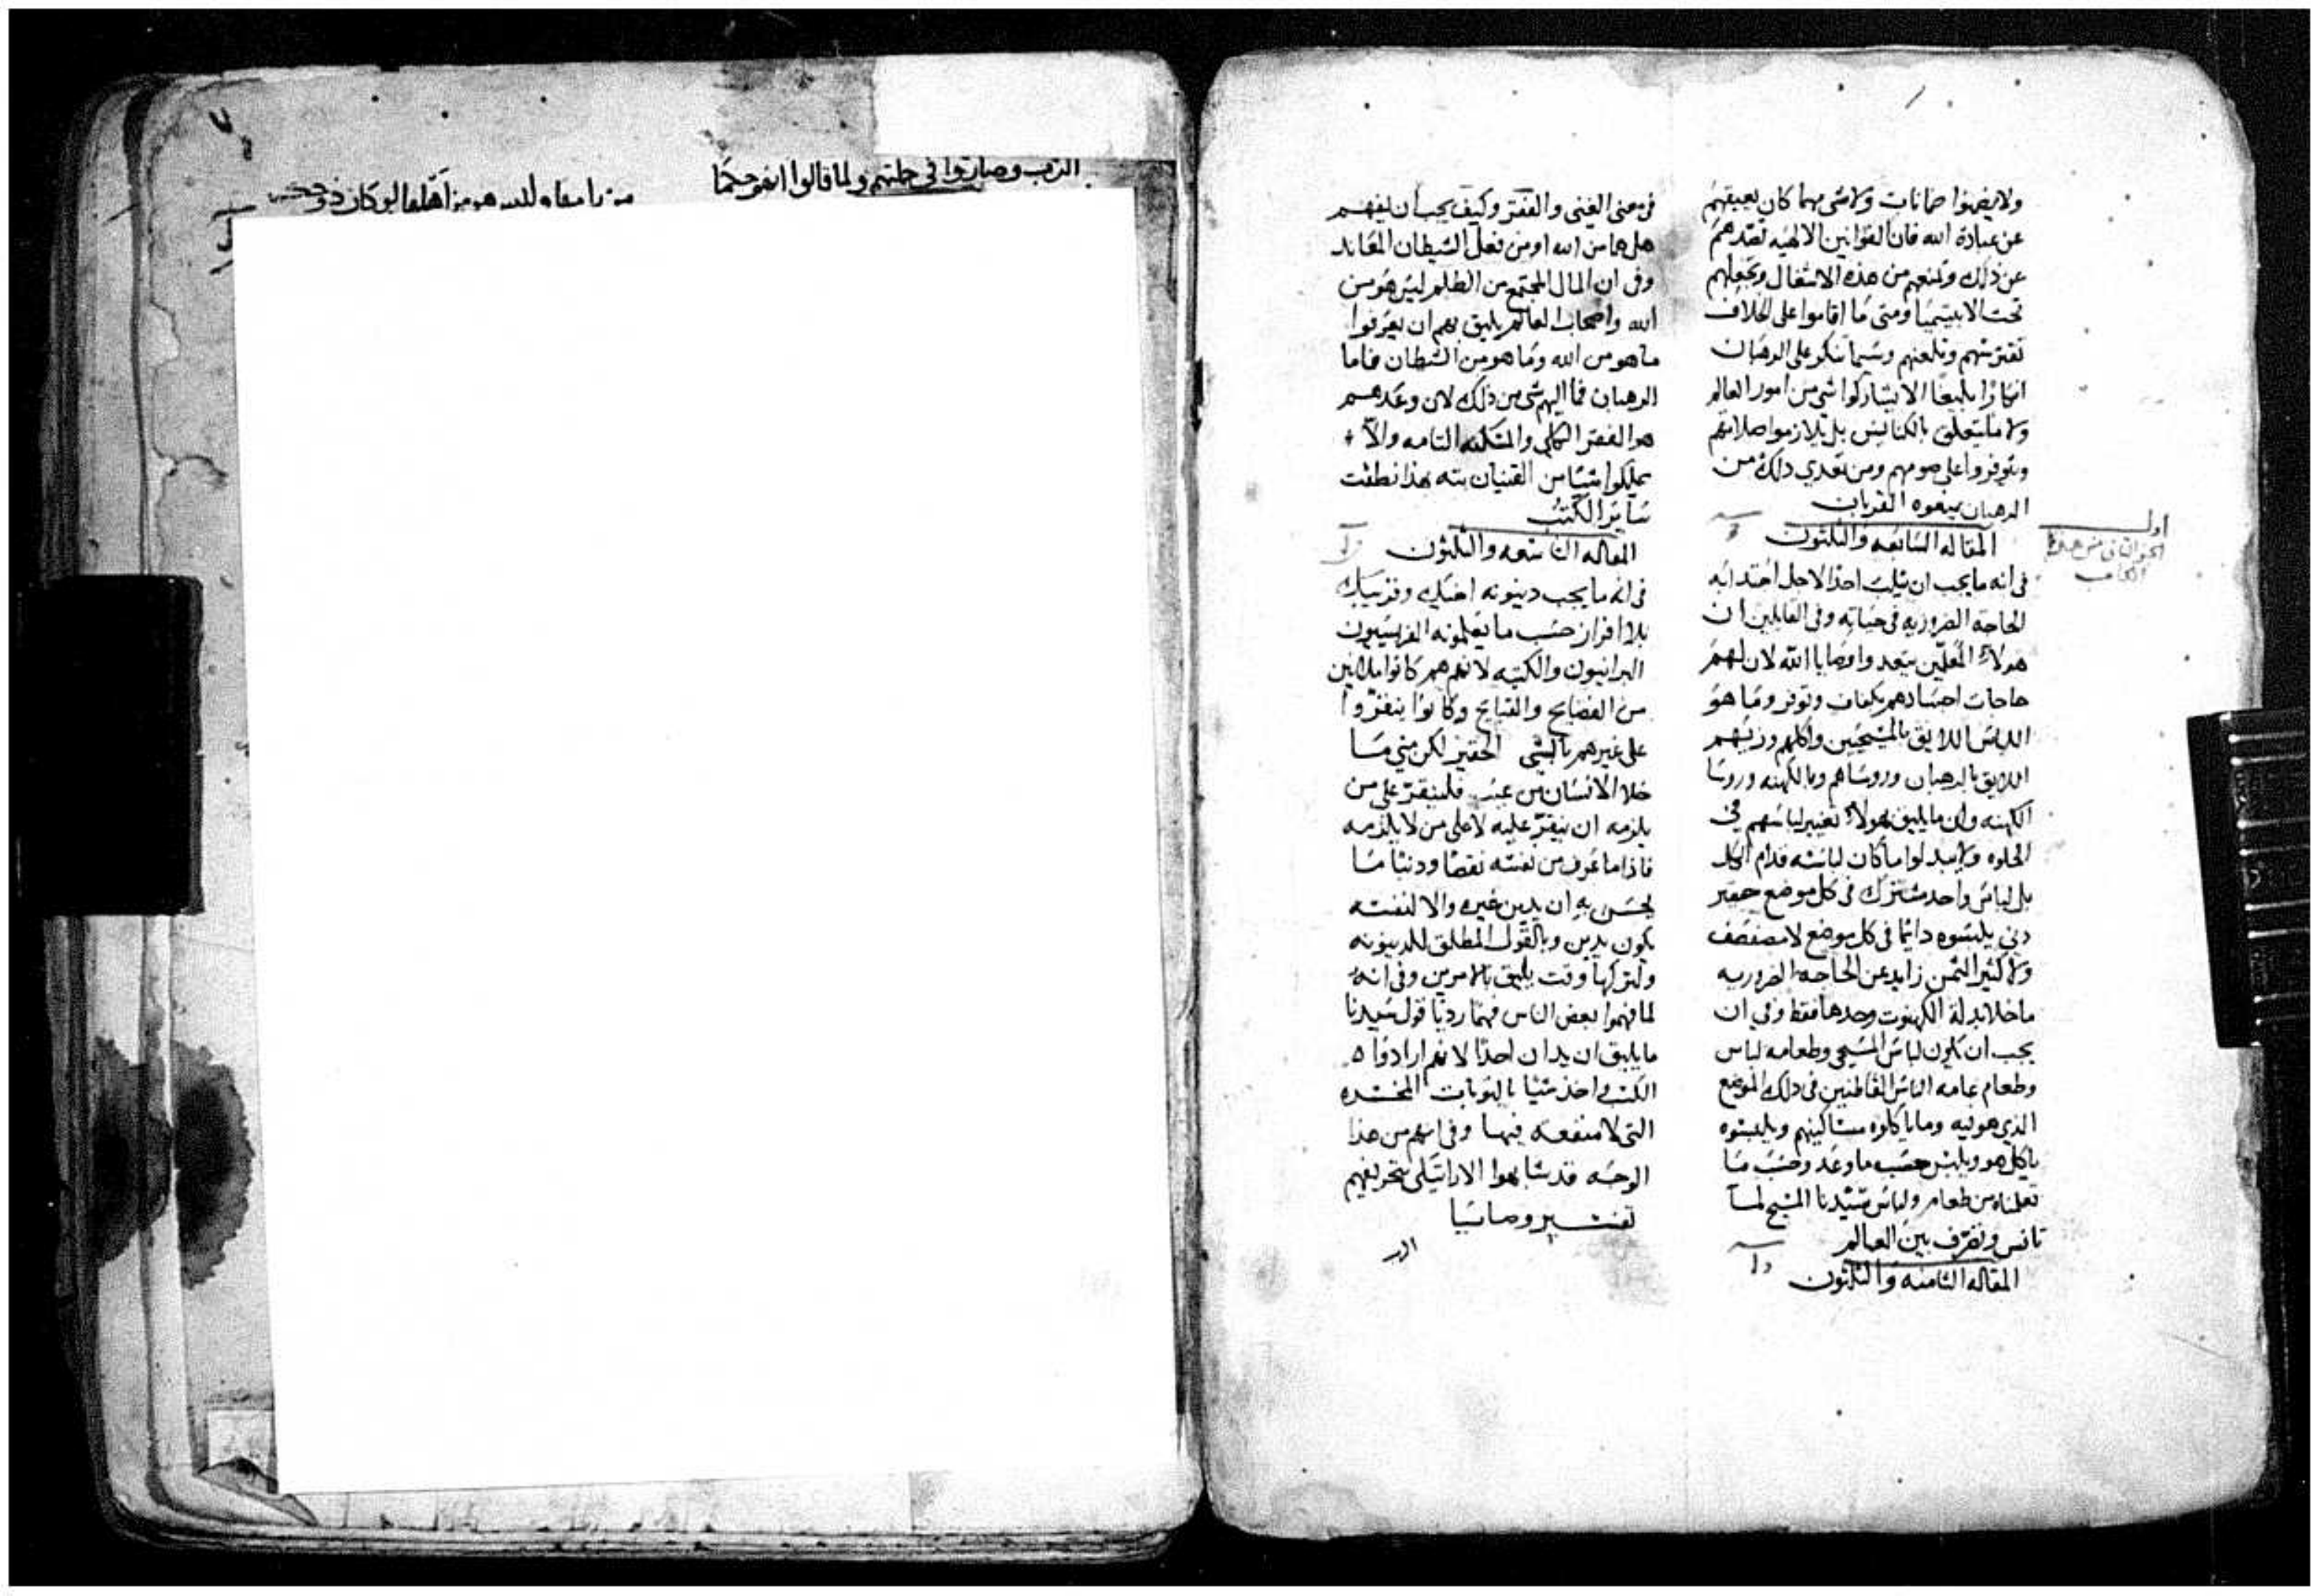 ولا يضمنوا ضمانات ولا شي مهما كان يعيقهم
عن عبادة الله فان القوانين الالهيه تصدهم
عن ذلك وتمنعهم من هذه الاشغال وتجعلهم
تحت الابيتيميا ومتى ما اقاموا على الخلاف
تفرزهم وتلعنهم وسيما تنكر على الرهبان
انكارًا بليغًا الا يشاركوا شي من امور العالم
ولا ما يتعلق بالكنايس بل يلازموا صلاتهم
ويتوفروا على صومهم ومن تعدي ذلك من
الرهبان يمنعوه القربان
المقاله السابعه والثلثون
في انه ما يجب ان يثلب احدًا لاجل
الحاجة الضروريه في حياته وفي القايلين ان
هولاء المعلّمين يتعدوا وصايا الله لان لهم
حاجات اجسادهم بكفاف وتوفر وما هو
اللباس اللايق بالمسيحيين واكلهم وزيهم
اللايق بالرهبان وروساهم وبالكهنه وروسا
الكهنه وان ما يليق بهولاء تغيير لباسهم في
الخلوه ولا يبدلوا ما كان لباسه قدام الكل
بل لباس واحد مشترك في كل موضع حقير
دني يلبسوه دايمًا في كل موضع لا
ولا كثير الثمن زايد عن الحاجه الضروريه
ما خلا بدلة الكهنوت وحدها فقط وفي ان
يجب ان يكون لباس المسيحي وطعامه لباس
وطعام عامه الناس القاطنين في ذلك الموضع
الذي هو فيه وما ياكلوه مساكينهم ويلبسوه
ياكل هو ويلبس حسب ما وعد وحسب ما
تعلمناه من طعام ولباس سيدنا المسيح لما
تانس وتصرف بين العالم
المقاله الثامنه والثلثون
اول
في معنى الغنى والفقر وكيف يجب ان يفهم
هل هما من الله او من فعل الشيطان المعاند
وفي ان المال المجتمع من الظلم ليس هو من
الله واصحاب العالم يليق بهم ان يعرفوا
ما هو من الله وما هو من الشيطان فاما
الرهبان فما اليهم شي من ذلك لان وعدهم
هو الفقر الكلي والمسكنه التامه والاّ
يملكوا شيئًا من القنيان بته بهذا نطقت
ساير الكتب
المقاله التاسعه والثلثون
في انه ما يجب دينونه اخيك وقريبك
بلا افراز حسب ما يعلمونه الفريسيون
البرانيون والكتبه لانهم هم كانوا ملانين
من الفضايح والقبايح وكانوا
على غيرهم بالشي الحقير لكن متي ما
خلا الانسان من عيب على من
يلزمه ان عليه لا على من لا يلزمه
فاذا ما عرف من نفسه نقصًا ودنيا ما
يحسن به ان يدين غيره والا لنفسه
يكون يدين وبالقول المطلق للدينونه
ولتركها وقت يليق بالامرين وفي انه
لما فهموا بعض الناس فهمًا رديًا قول سيدنا
ما يليق ان يدان احدًا لانهم ارادوا
الكسب واخذ شيئا بالتوبات
التي لا منفعه فيها وفي انهم من هذا
الوجه قد شابهوا الاراتيكي بتحريفهم
تفسير وصايا
وصاروا في جملتهم ولما قالوا انهم حكما